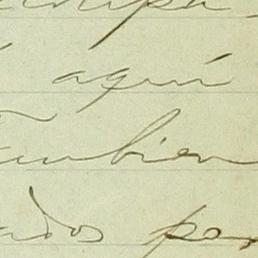 aquí
ambien
ados por